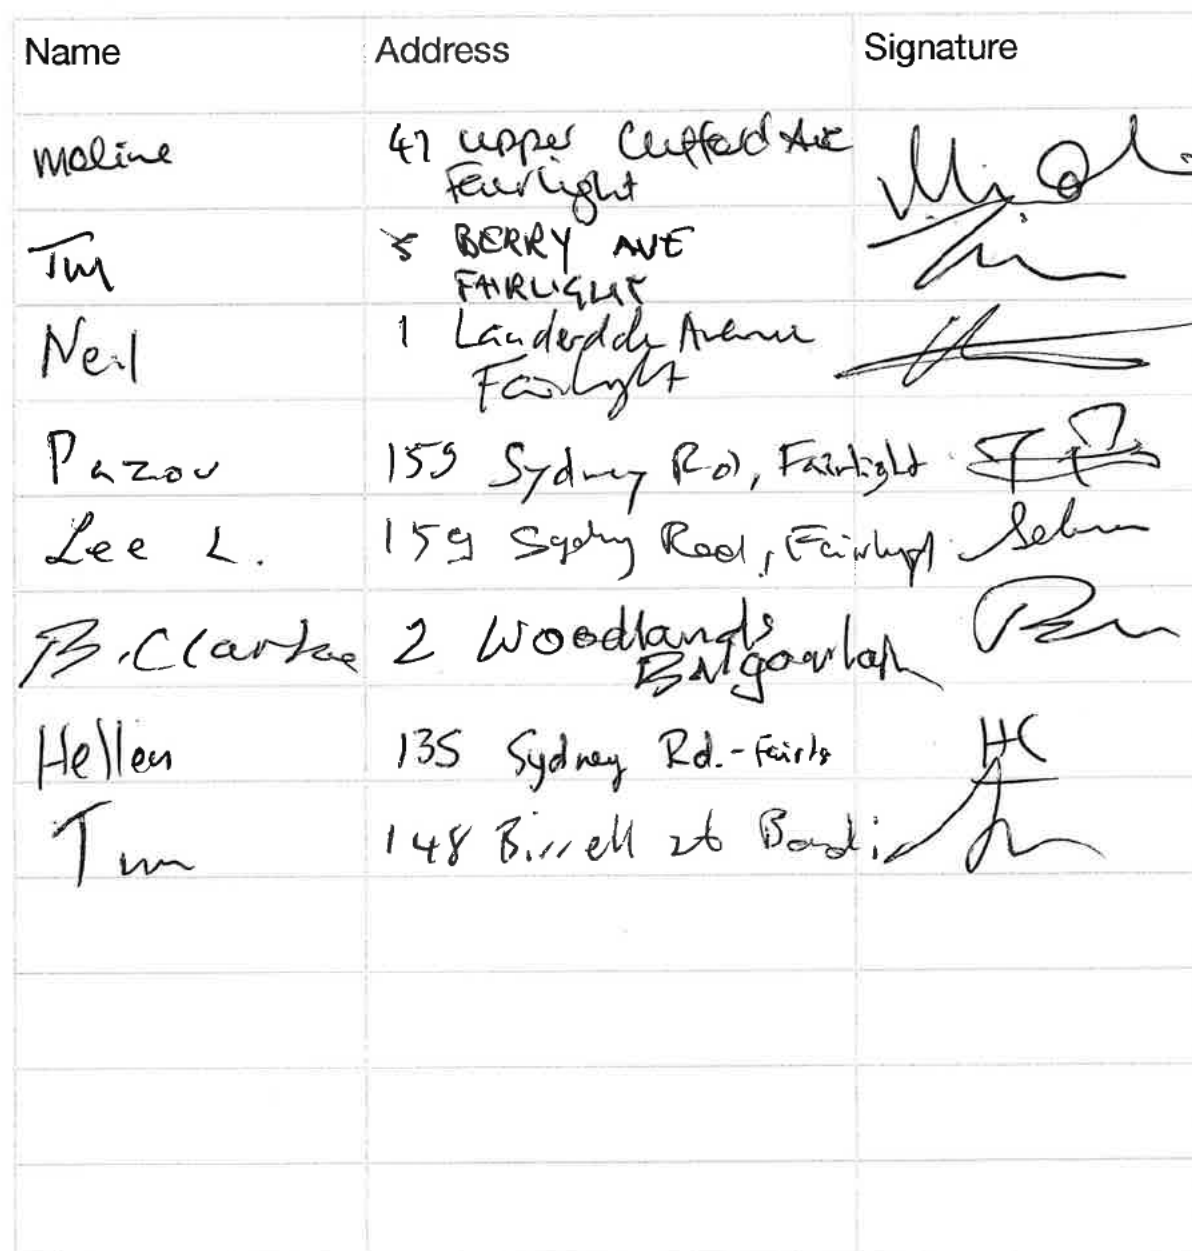 Name Address Signature
Maline 47 Upper Clifford Ave
Fairlight
Tim 5 BERRY AVE
FAIRLIGHT
Neil 1 Lauderdale Avenue
Fairlight
Pazov 159 Sydney Rd, Fairlight
Lee L. 159 Sydney Road, Fairlight
B. Clarke 2 Woodlands
Balgowlah
Hellen 135 Sydney Rd. - Fairly HC
Tim 148 Birrell st Bondi